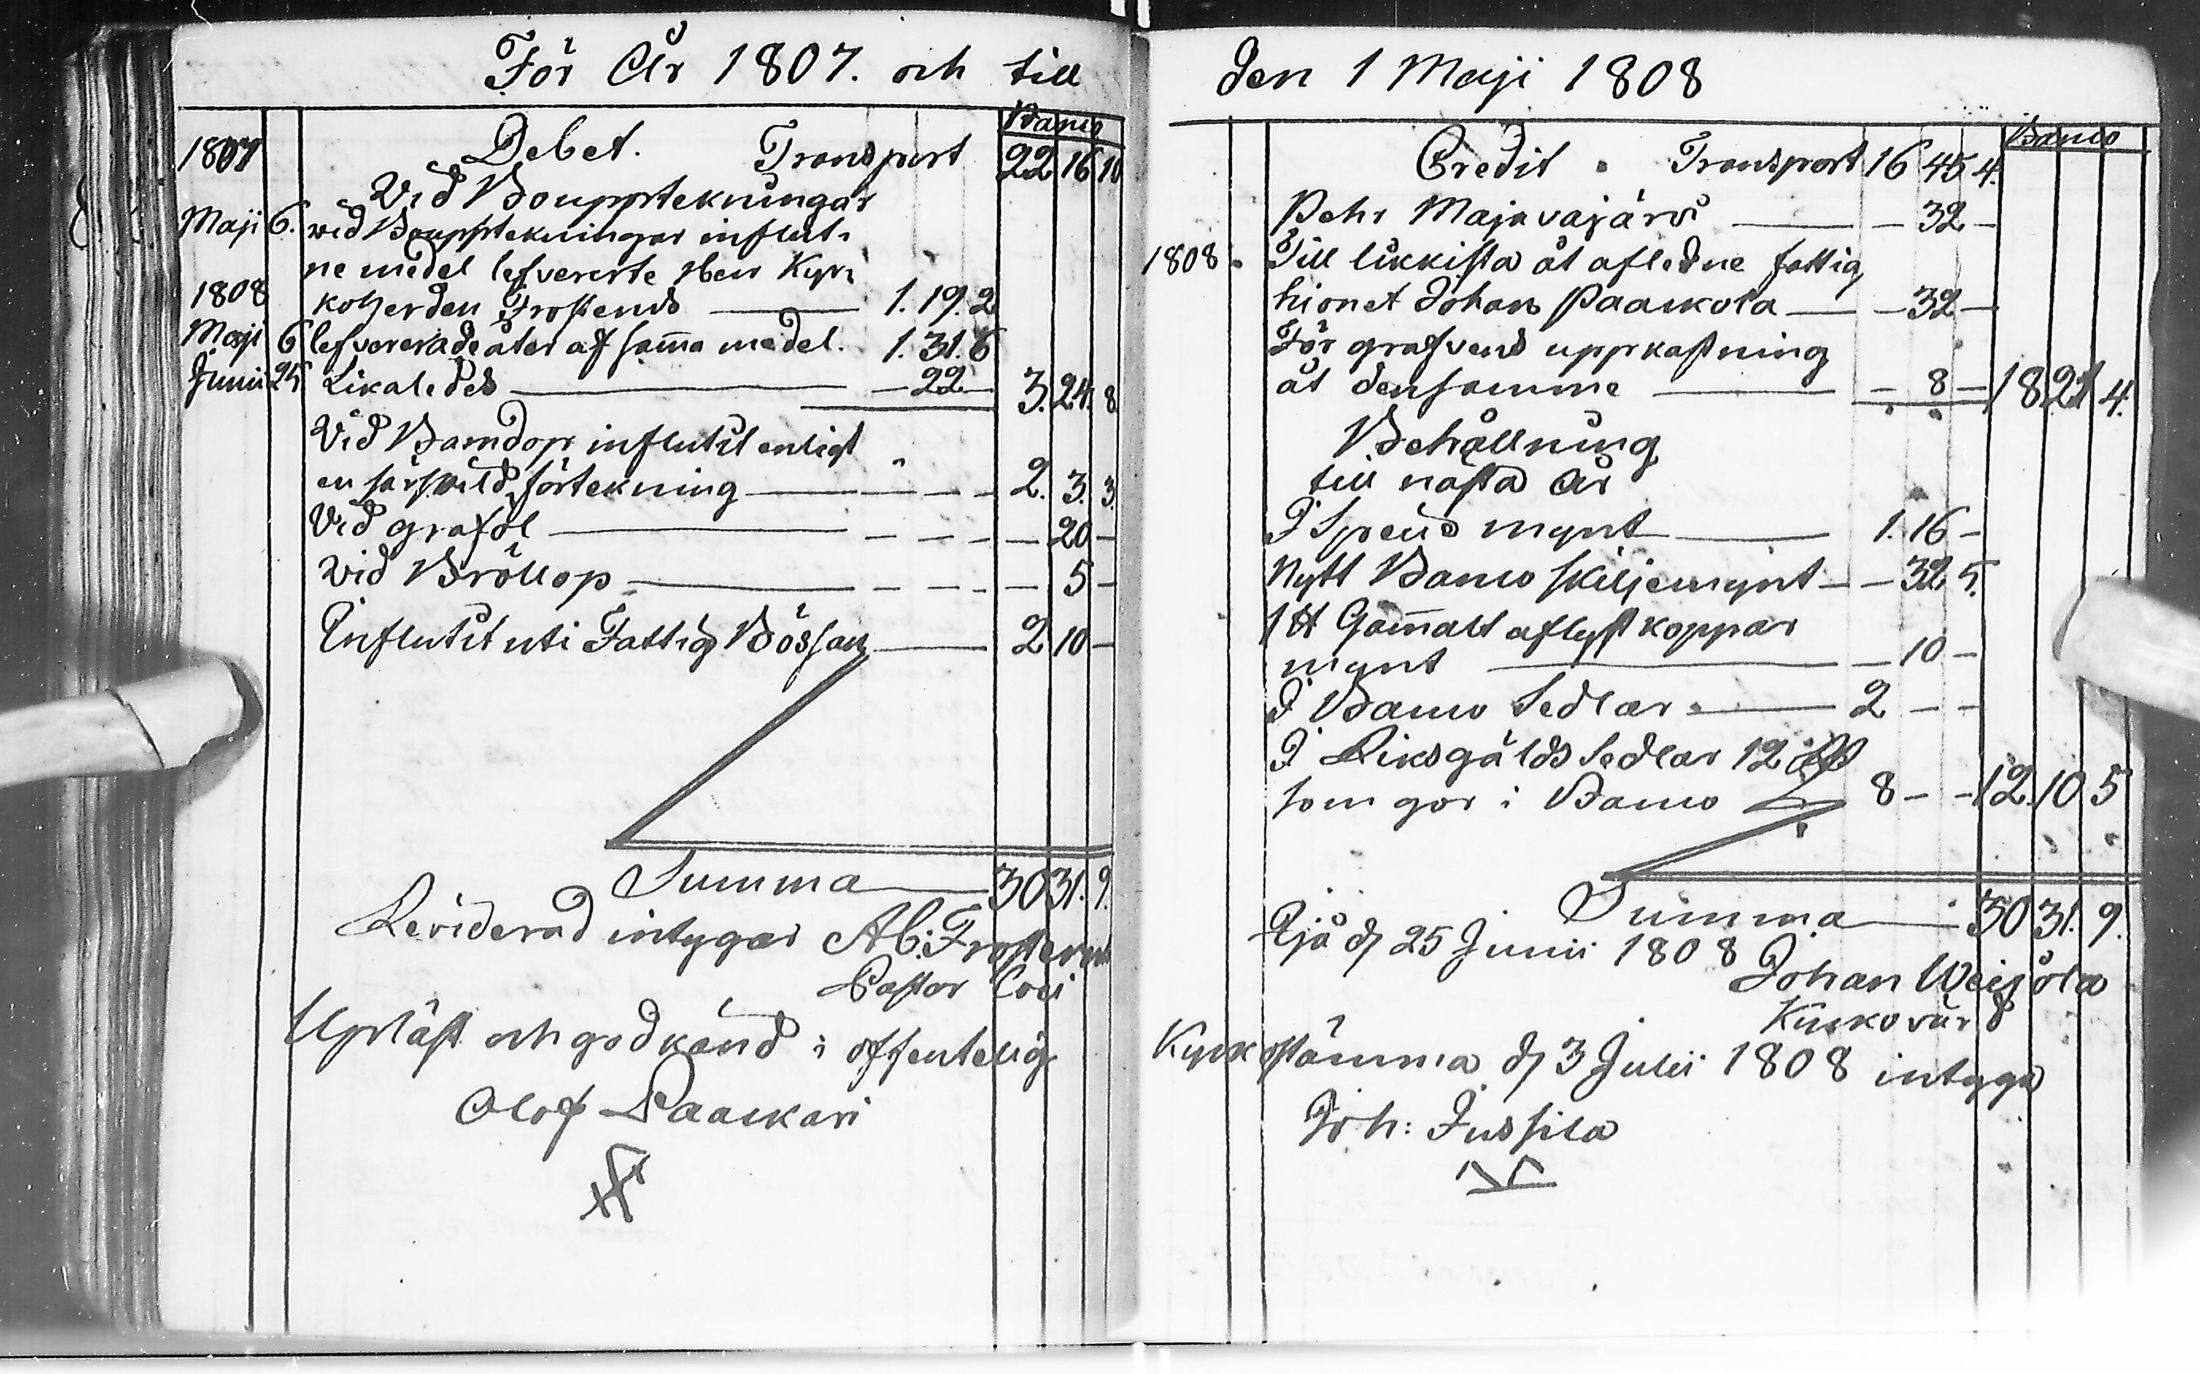 För År 1807. och till
Banco
1807 Debet. Transport 22 16 10
Vid Bouppteknungar
Maji 6. wid Bouppteknungar influt-
ne medel lefvererte Herr Kyr-
1808 koherden Frosterus 1. 19. 2
Maji 6 lefvererade åter af samma medel. 1. 31. 6
Junii 25 Likaledes — 22 — 3. 24. 8
Vid Barndop influtit enligt
en särskild förtekning — — — 2. 3. 3
Vid grafol — — — — 20 —
Wid Bröllop — — — — 5 —
Influtit uti Fattig Bössan 2 10 —
Summa 30 31. 9.
Reviderad intygar Ab: Frosterus
Pastor Loci
Upläst och godkänd i offentelig
Olof Paackari
den 1 Maji 1808
Banco
Credit. Transport 16 45 4.
Pehr Majavajärvi — 32 —
1808. Till likkista åt afledne fattig
hionet Johan Paakkola — 32 —
För grafvens uppkastning
åt densamme — 8 — 18 21 4.
Behållning
till nästa År
I Specie mynt 1. 16 —
Nytt Banco skiljemynt — 32 5.
1 ℔ Gam̅alt aflyst koppar
mynt — 10 —
I Banco Sedlar 2 — —
I Riksgälds Sedlar 12 Rd
som gör i Banco 8 — — 12. 10 5
Summa 30 31. 9.
Ijå d 25 Junii 1808
Johan Weijola
Kyrkovärd
Kyrkostämma d 3 Julii 1808 intyga
Joh: Jussila